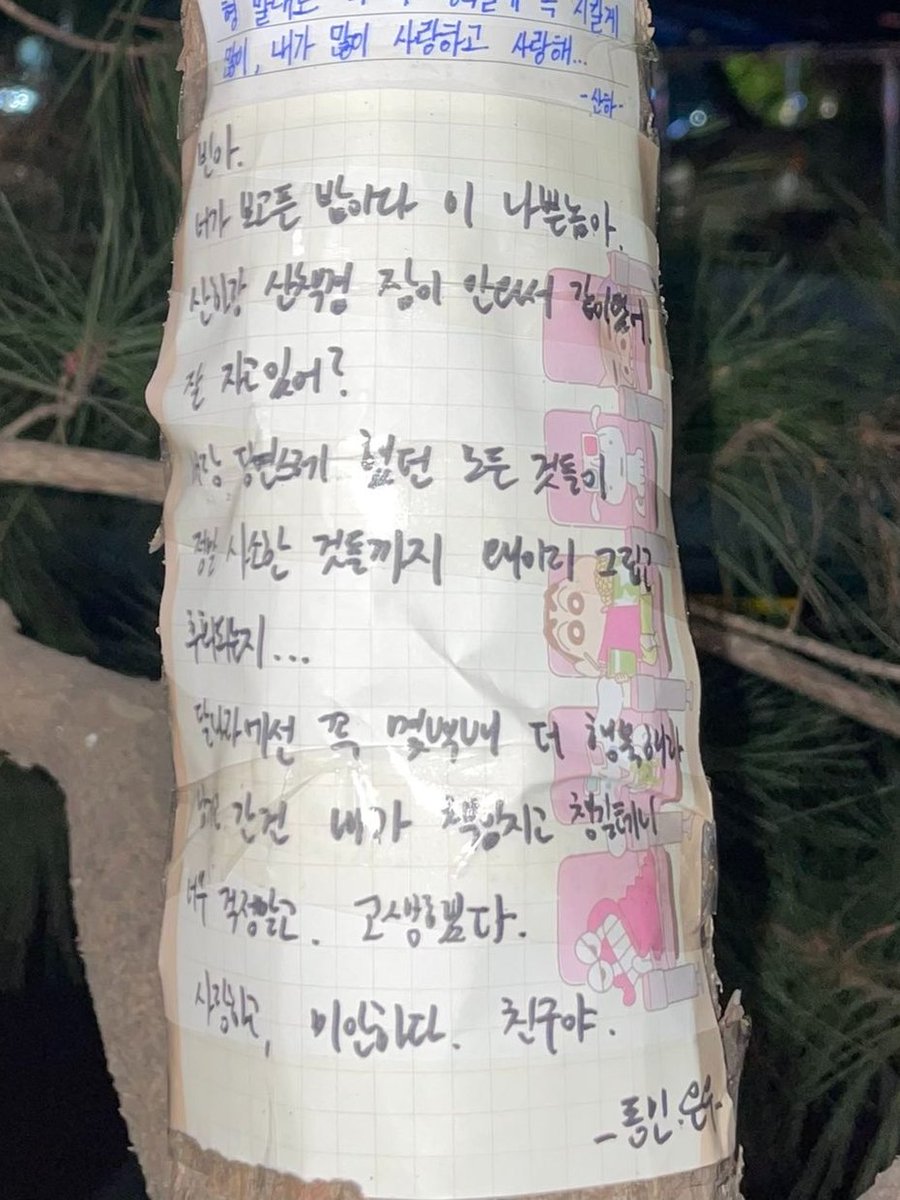 형 말대로 꼭 지킬게
많이, 내가 많이 사랑하고 사랑해...
-산하-
빈아.
너가 보고픈 밤이다 이 나쁜놈아.
산하랑 산책겸 잠이 안와서 같이왔어.
잘 자고있어?
너랑 당연스레 했던 모든 것들이
정말 사소한 것들까지 왜이리 그립고
후회되는지...
달나라에선 꼭 몇백배 더 행복해라
간건 내가 책임지고 챙길테니
너무 걱정말고. 고생했다.
사랑하고, 미안하다. 친구야.